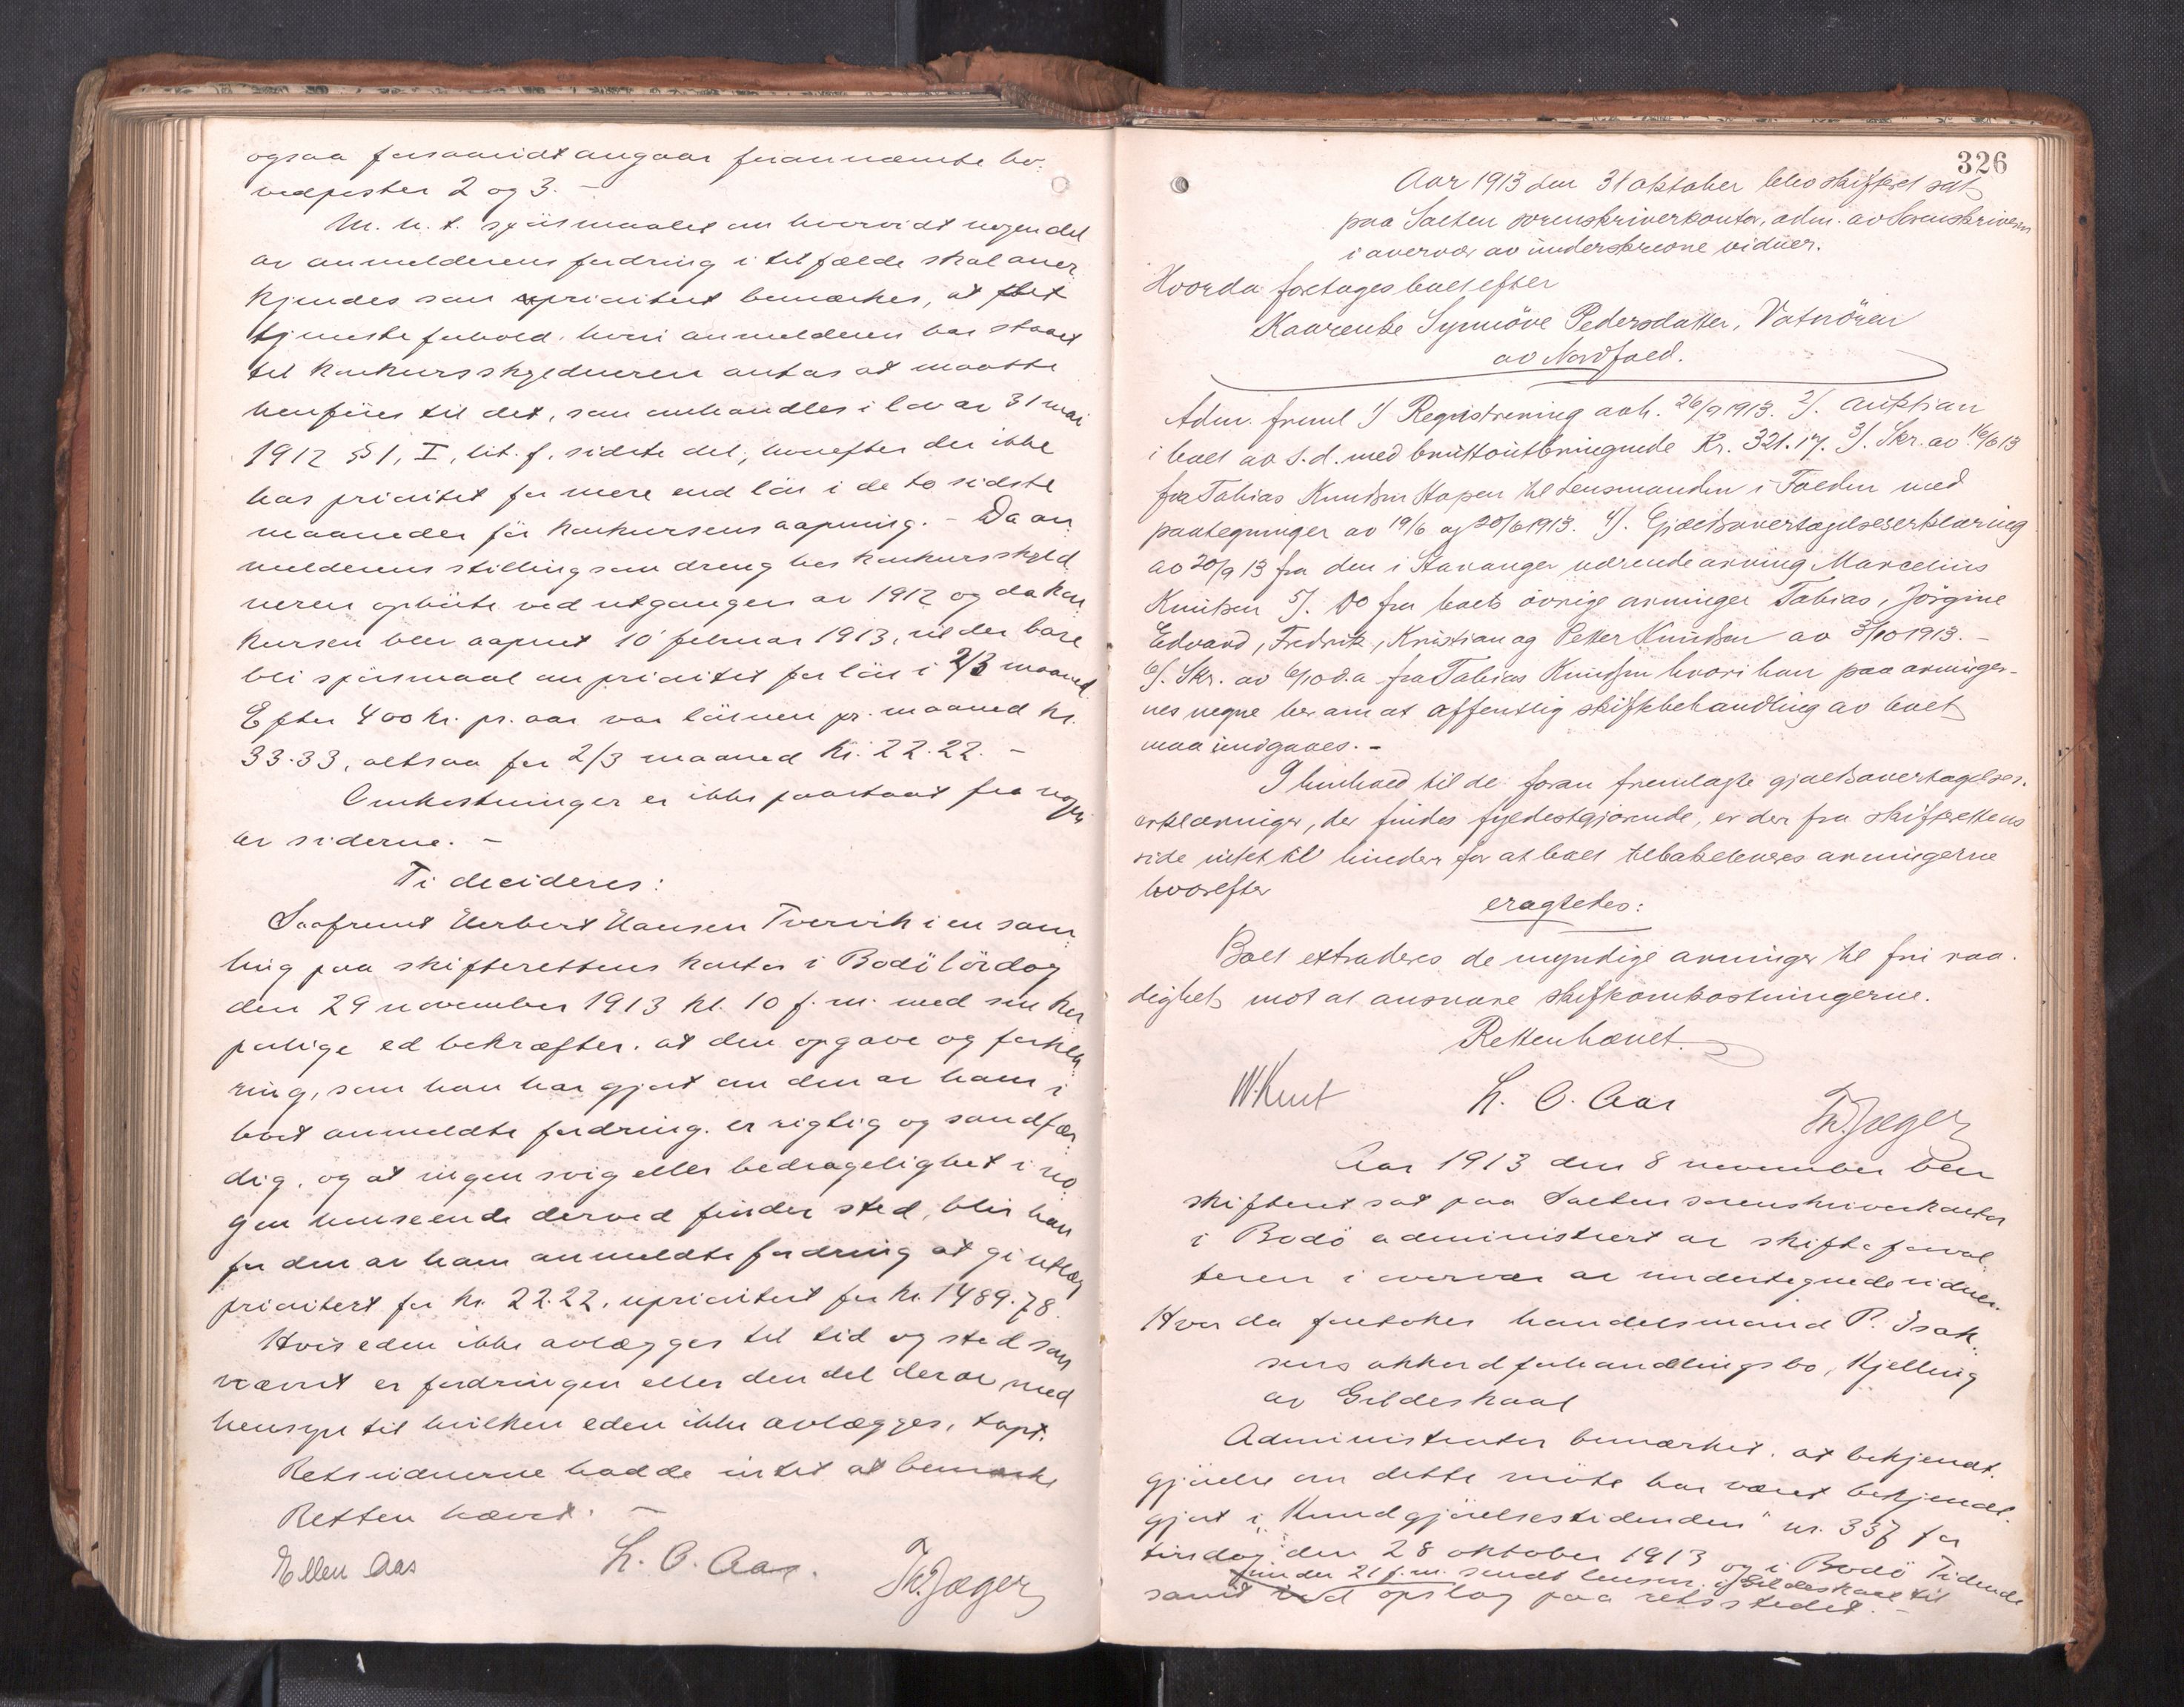 ogsaa forsaavidt angaar forannævnte ho-
vedposter 2 og 3. -
M. h. t. spörsmaalet om hvorvidt nogen del
av anmelderens fordring i tilfælde skal aner
kjendes som prioritert bemærkes, at det
tjenesteforhold, hvori anmelderen har staaet
til konkursskyldneren antas at maatte
henföres til det, som omhandles i lov av 31 mai
1912 § 1, I, lit. f, sidste del, hvorefter der ikke
has prioritet for mere end lön i de to sidste
maaneder för konkursens aapning. - Da an
melderens stilling som dreng hos konkursskyld
neren ophörte ved utgangen av 1912 og da kon
kursen blev aapnet 10 februar 1913, vil der bare
bli spörsmaal om prioritet for lön i 2/3 maaned
Efter 400 kr. pr. aar var lönnen pr. maaned kr.
33.33, altsaa for 2/3 maaned Kr. 22.22. -
Omkostninger er ikke paastaat fra nogen
av siderne. -
Ti decideres:
Saafremt Herbert Hansen Tvervik i en sam
ling paa skifterettens kontor i Bodö lördag
den 29 november 1913 kl. 10 f.m. med sin kor
porlige ed bekræfter, at den opgave og forkla
ring, som han har gjort om den av ham i
boet anmeldte fordring, er rigtig og sandfær
dig, og at ingen svig eller bedragelighet i no
gen henseende derved finder sted, blir han
for den av ham anmeldte fordring at gi utlæg
prioritert for kr. 22.22, uprioritert for kr. 1489.78.
Hvis eden ikke avlægges til tid og sted som
nævnt er fordringen eller den del derav med
hensyn til hvilken eden ikke avlægges, tapt.
Retsvidnerne hadde intet at bemærke
Retten hævet. -
Ellen Aas L. O. Aas. Th. Jæger
326
Aar 1913 den 31 oktober blev skifteret sat
paa Salten sorenskriverkontor, adm. av Sorenskriveren
i overvær av underskrevne vidner.
Hvorda foretoges boet efter
Kaarenke Synnöve Pedersdatter, Vatnören
av Nordfold.
Adm. freml 1/ Registrering avh. 26/9 1913. 2/. Auktion
i boet av s.d. med bruttoutbringende Kr. 321.17. 3/. Skr. av 16/6 13
fra Tobias Knudsen Hopen til Lensmanden i Folden med
paategninger av 19/6 og 20/6 1913. 4/. Gjældsovertagelseserklæring
av 20/9 13 fra den i Stavanger værende arving Marcelius
Knutsen 5/. Do fra boets övrige arvinger Tobias, Jörgine
Edvard, Fredrik, Kristian og Petter Knudsen av 3/10 1913. -
6/. Skr. av 6/10 d.a fra Tobias Knudsen hvori han paa arvinger-
nes vegne ber om at offentlig skiftebehandling av boet
maa undgaaes. -
I henhold til de foran fremlagte gjældsovertagelses-
erklæringer, der findes fyldestgjørende, er der fra skifterettens
side intet til hinder for at boet tilbakeleveres arvingerne
hvorefter
eragtedes:
Boet extraderes de myndige arvinger til fri raa-
dighet mot at ansvare skifteomkostningerne.
Retten hævet.
W. Knut L. O. Aas Th. Jæger
Aar 1913 den 8 november blev
skifteret sat paa Salten sorenskriverkontor
i Bodö administrert av skifteforval
teren i overvær av undertegnede vidner.
Hvorda foretokes handelsmand P. Isak
sens akkordforhandlingsbo, Kjelling
av Gildeskaal
Administrator bemærket, at bekjendt-
gjörelse om dette möte har været bekjendt-
gjort i "Kundgjörelsestidenden" nr. 337 for
tirsdag den 28 oktober 1913 og i Bodö Tidende
under 21 f.m. sendt lensm. i Gildeskaal til
samt ved opslag paa retsstedet. -